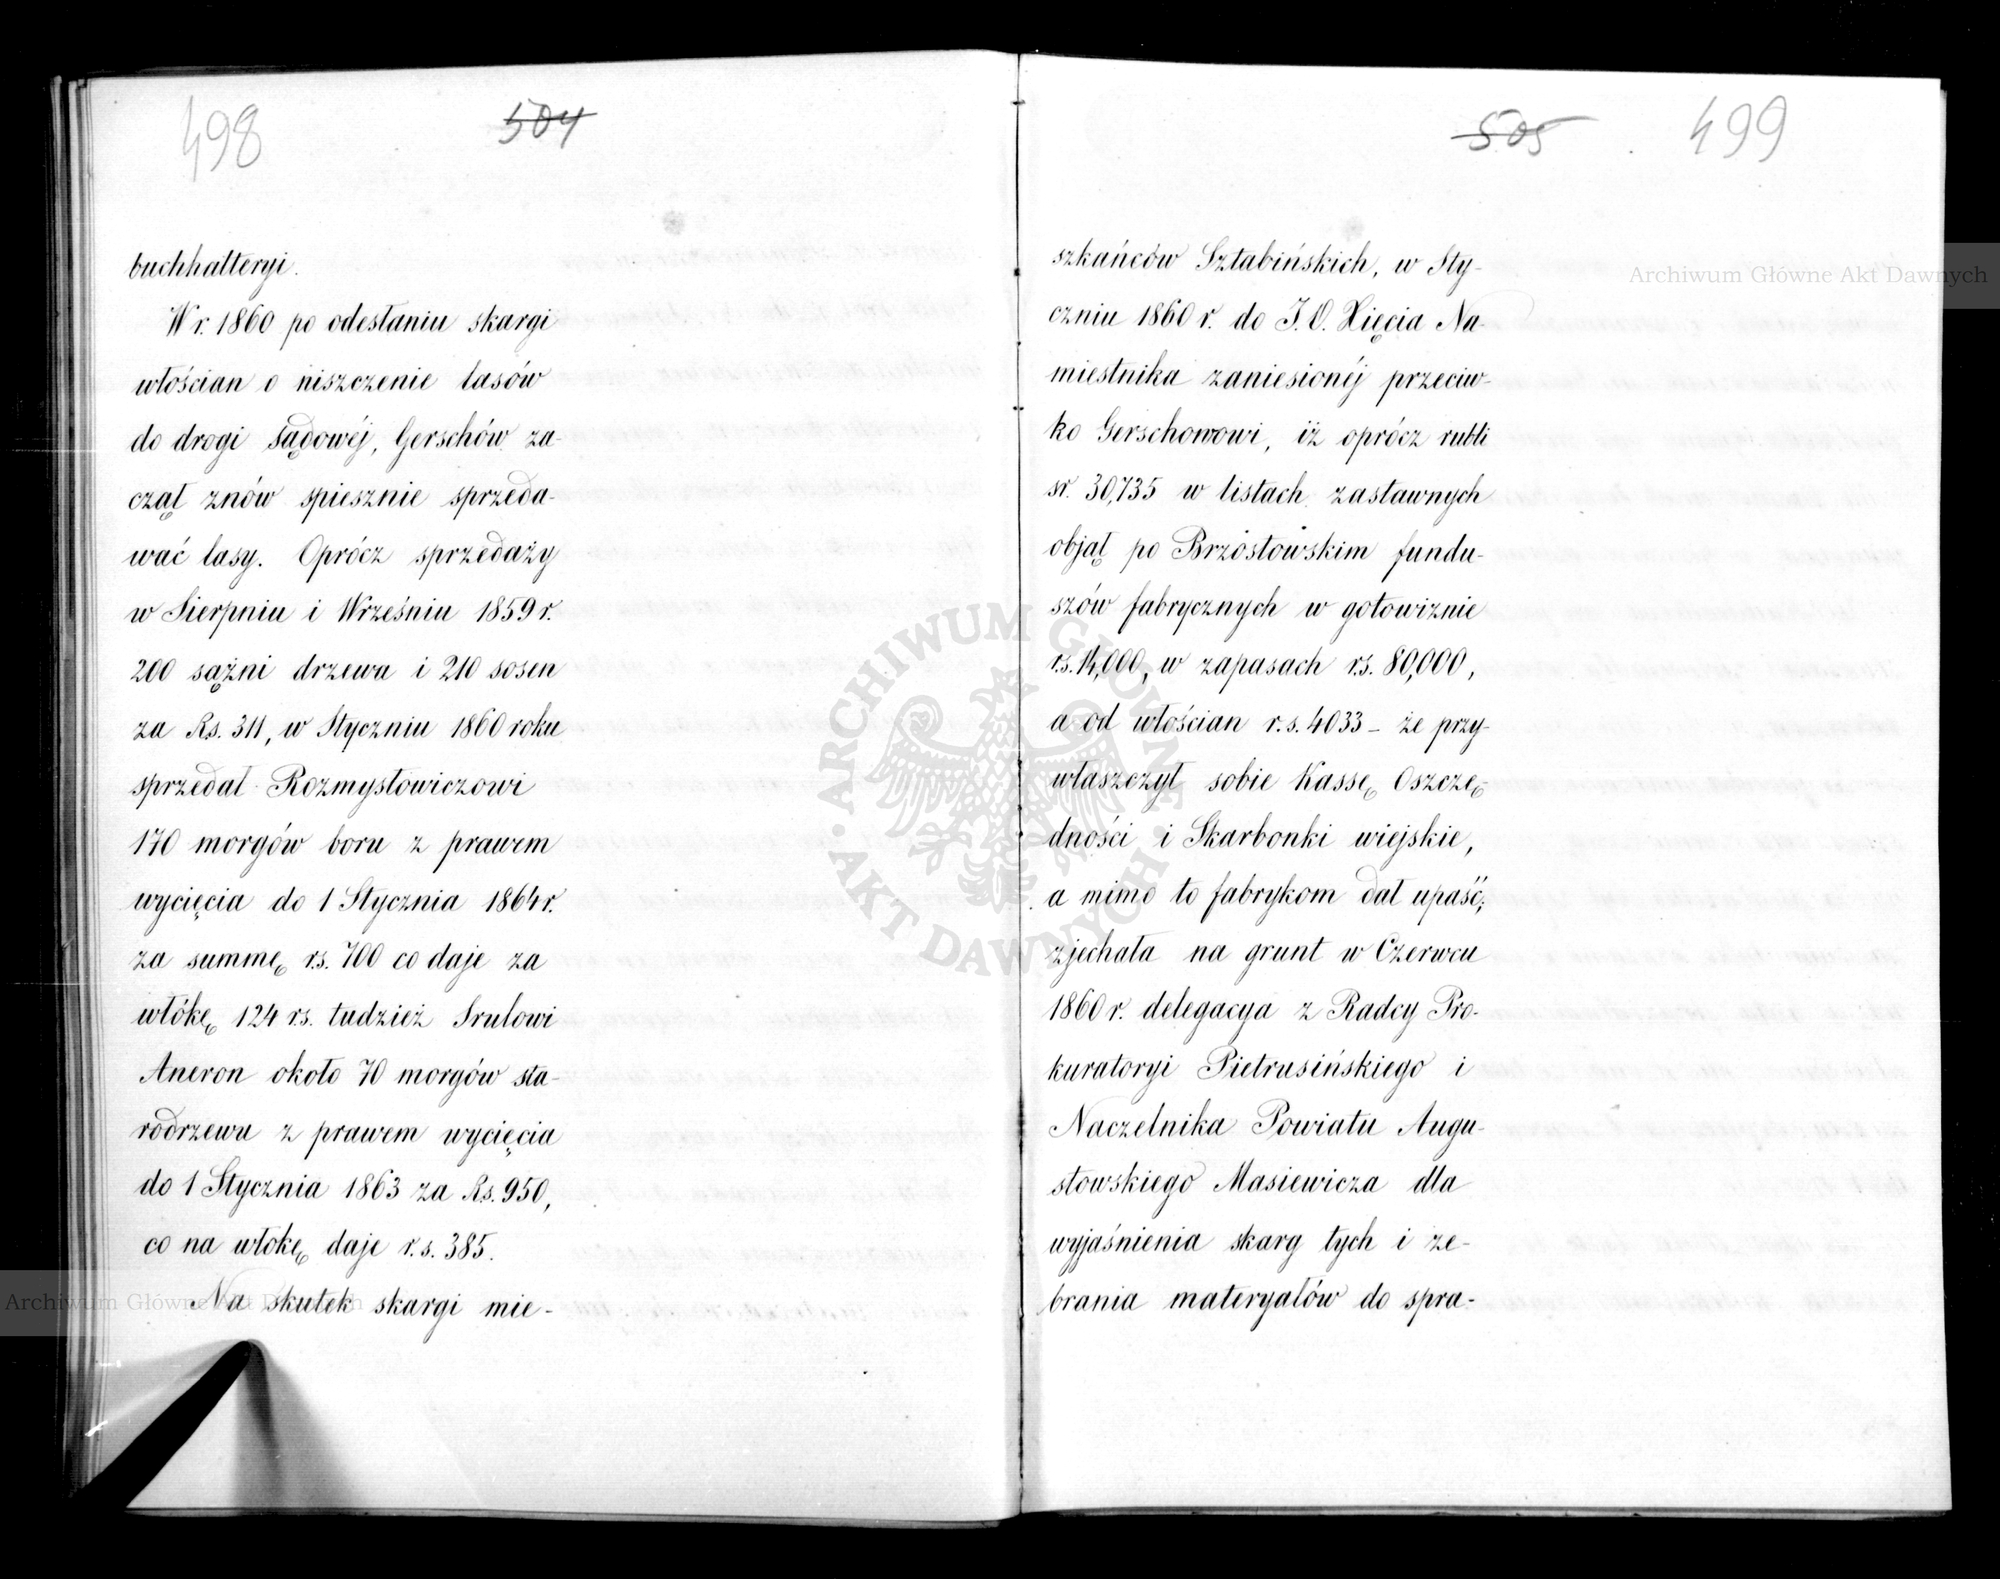 498
504
buchhalteryi.
W r. 1860 po odesłaniu skargi
włościan o niszczenie lasów
do drogi sądowéj, Gerschów za-
czął znów spiesznie sprzeda-
wać lasy. Oprócz sprzedaży
w Sierpniu i Wrześniu 1859 r.
200 sążni drzewa i 210 sosen
za Rs. 311, w Styczniu 1860 roku
sprzedał Rozmysłowiczowi
170 morgów boru z prawem
wycięcia do 1 Stycznia 1864 r.
za summę rs. 700 co daje za
włókę 124 rs. tudzież Srulowi
Aneron około 70 morgów sta-
rodrzewu z prawem wycięcia
do 1 Stycznia 1863 za Rs. 950,
co na włokę daje r.s. 385.
Na skutek skargi mie-
505
499
szkańców Sztabińskich, w Sty-
czniu 1860 r. do J.O. Xięcia Na-
miestnika zaniesionéj przeciw-
ko Gerschonowi, iż oprócz rubli
sr. 30,735 w listach zastawnych
objął po Brzóstowskim fundu-
szów fabrycznych w gotowiznie
rs. 14,000, w zapasach r.s. 80,000,
a od włościan r.s. 4033 – że przy-
właszczył sobie Kassę Oszczę-
dności i Skarbonki wiejskie,
a mimo to fabrykom dał upaść;
zjechała na grunt w Czerwcu
1860 r. delegacya z Radcy Pro-
kuratoryi Pietrusińskiego i
Naczelnika Powiatu Augu-
stowskiego Masiewicza dla
wyjaśnienia skarg tych i ze-
brania materyałów do spra-
Archiwum Główne Akt Dawnych
Archiwum Główne Akt Dawnych
ARCHIWUM GŁÓWNE AKT DAWNYCH